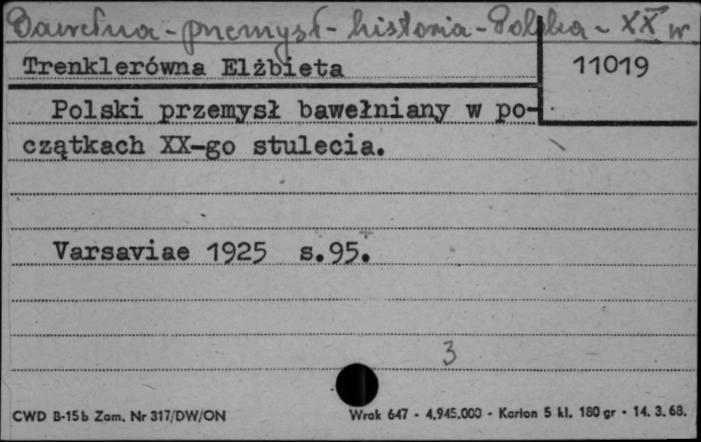 Bawełna - przemysł - historia - Polska - XX w
Trenklerówna Elżbieta
11019
Polski przemysł bawełniany w po-
czątkach XX-go stulecia.
Varsaviae 1925 s.95.
3
CWD B-15b Zam. Nr 317/DW/ON Wrak 647 - 4.945.000 - Karton 5 kl. 180 gr - 14. 3. 68.